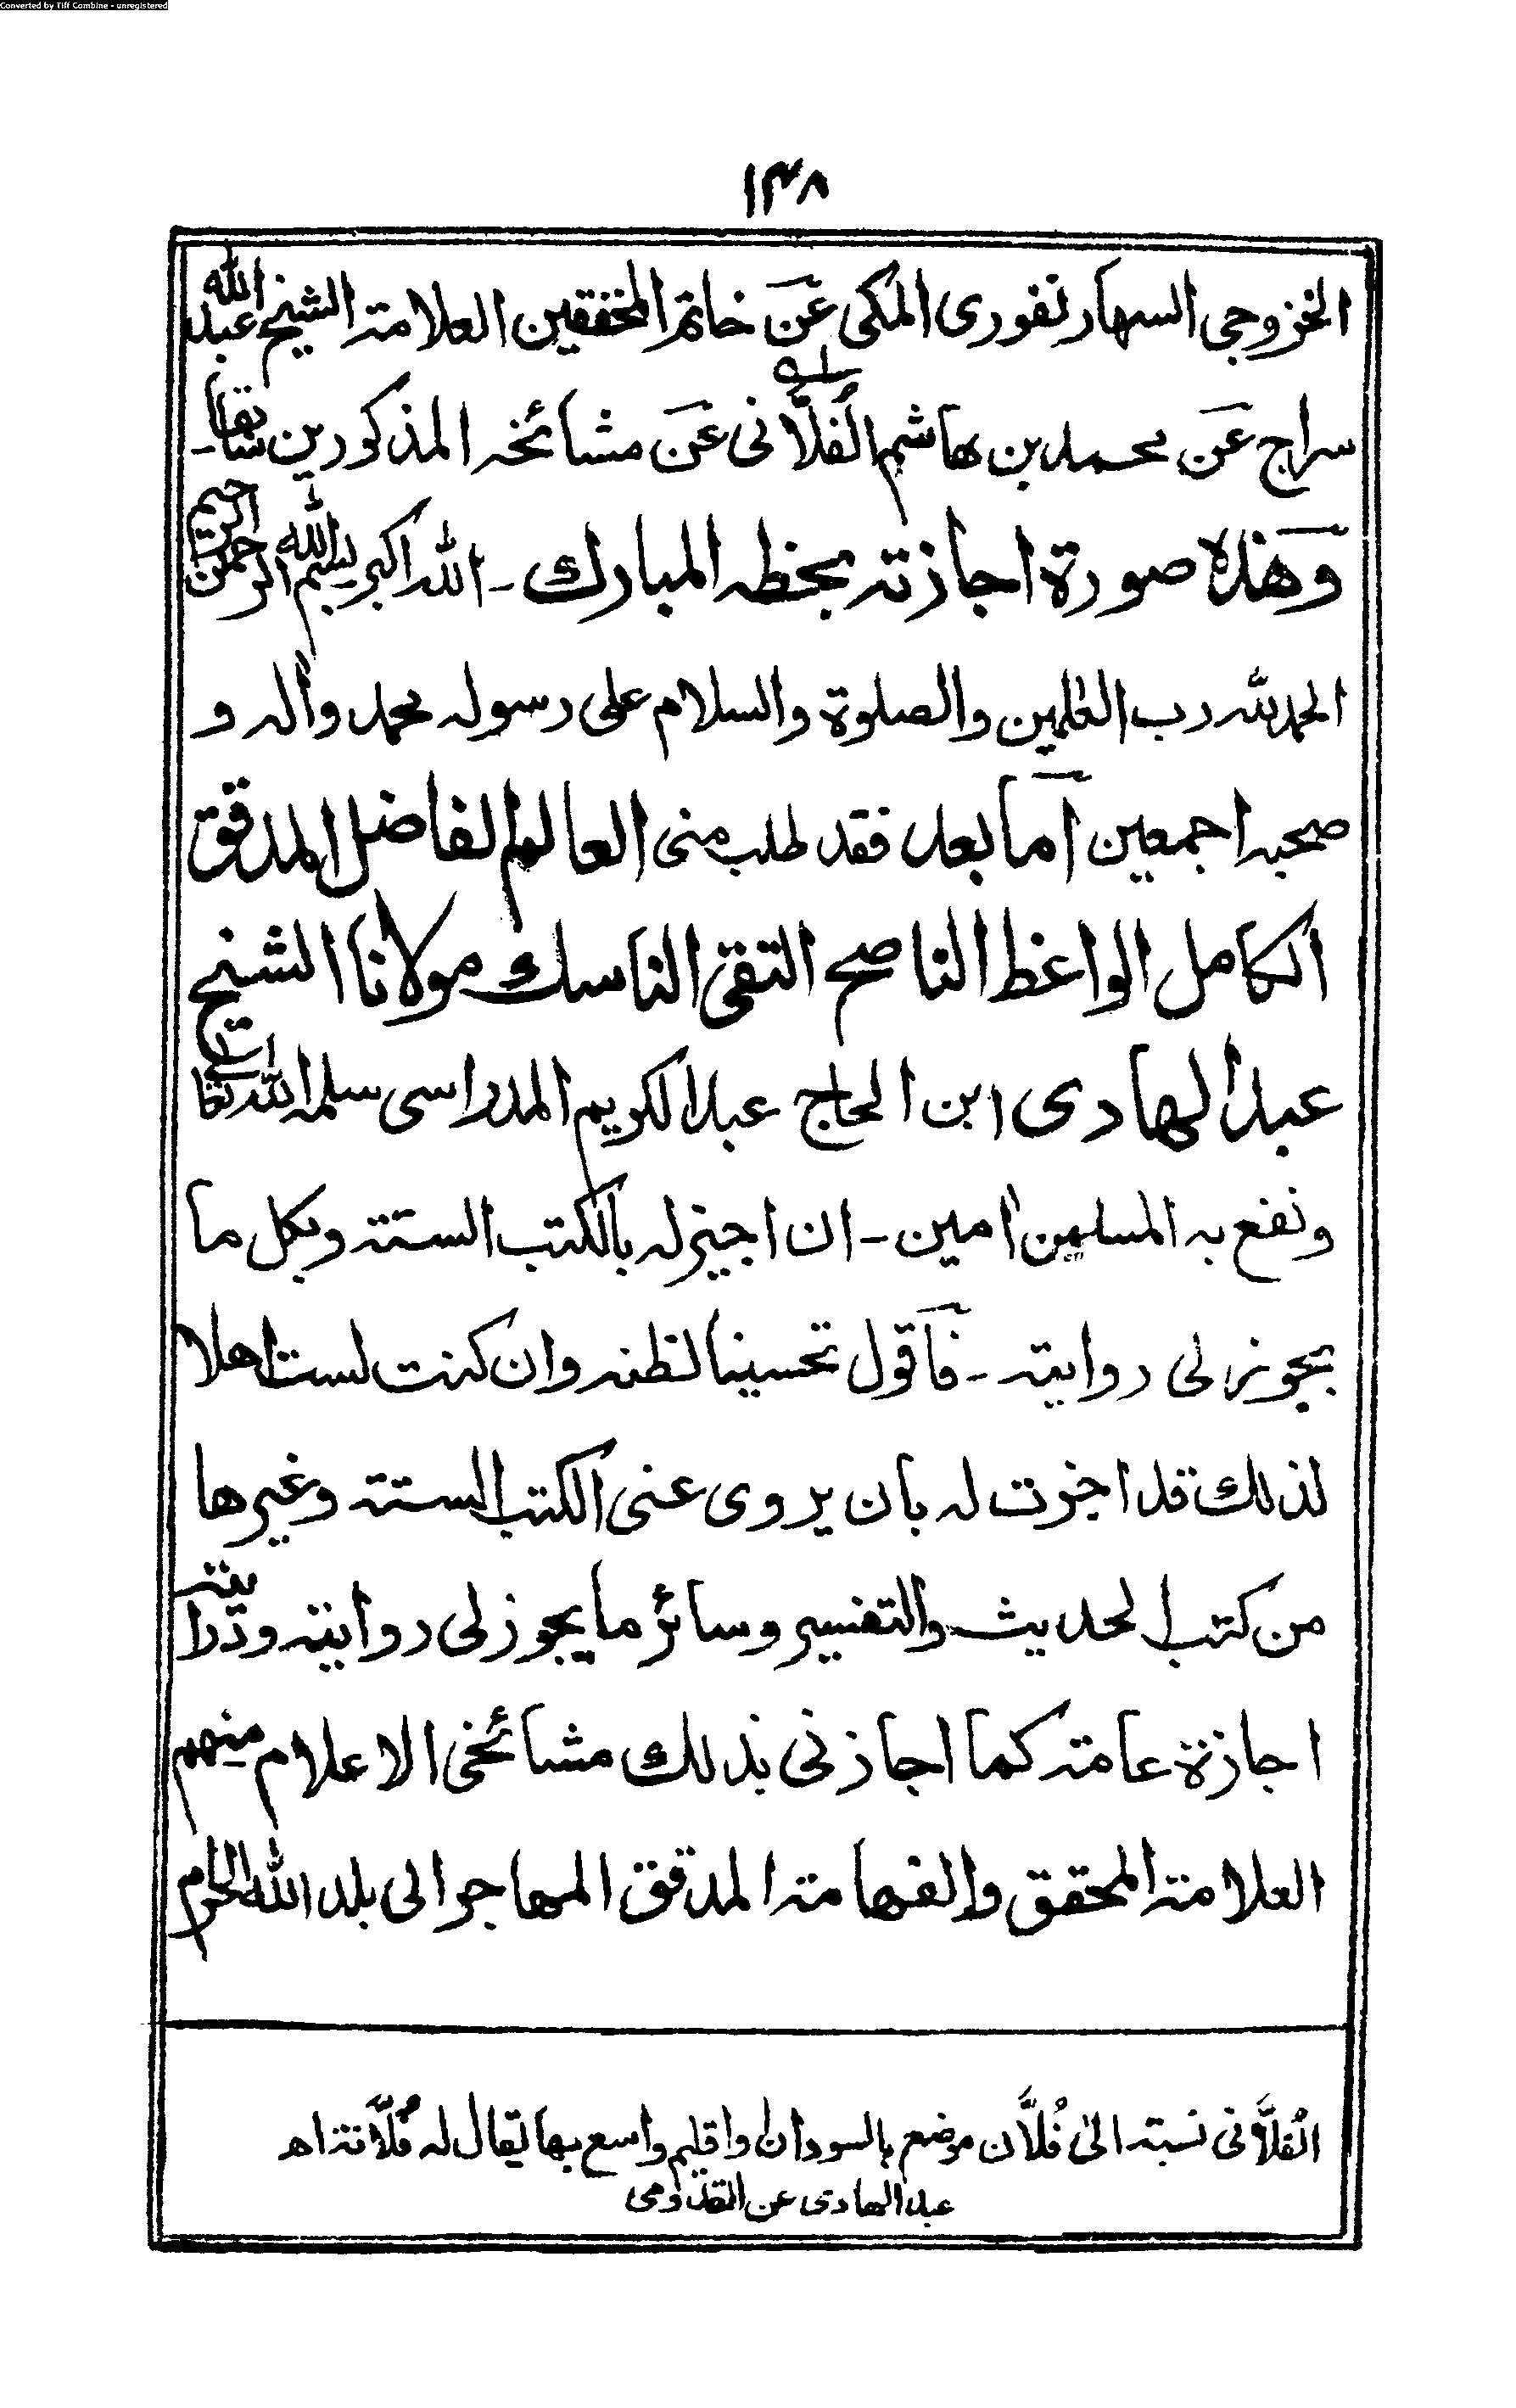 Converted by Tiff Combine - unregistered
١٣٨
الخزرجى السهارنفورى المكى عَن خاتم المحققين العلامة الشيخ عبد الله
سراج عَن محمد بن هاشم الفُلَّانى عَن مشائخه المذكورين سابقا ـ
وَهَذه صورة اجازته بخطه المبارك ـ الله اكبر بسم الله الرحمن الرحيم
الحمد لله رب العٰلمين والصلوة والسلام على رسوله محمد واٰله و
صحبه اجمعين اَما بعد فقد طلب منى العالم الفاضل المدقق
الكامل الواعظ الناصح التقى الناسك مولانا الشيخ
عبد الهادى ابن الحاج عبد الكريم المدراسى سلمه الله تعالى
ونفع به المسلمين اٰمين ـ ان اجيز له بالكتب الستة وبكل ما
يجوز لى روايته ـ فاَقول تحسينا لظنه وان كنت لست اهلا
لذلك قد اجزت له بان يروى عنى الكتب الستة وغيرها
من كتب الحديث والتفسير وسائر ما يجوز لى روايته ودرايته
اجازة عامة كما اجازنى بذلك مشائخى الاعلام منهم
العلامة المحقق والفهامة المدقق المهاجر الى بلد الله الحرام
الفُلَّانى نسبة الىٰ فُلَّان موضع بالسودان واقليم واسع بها يقال له فُلَّانة اهـ
عبد الهادى عن القدومى